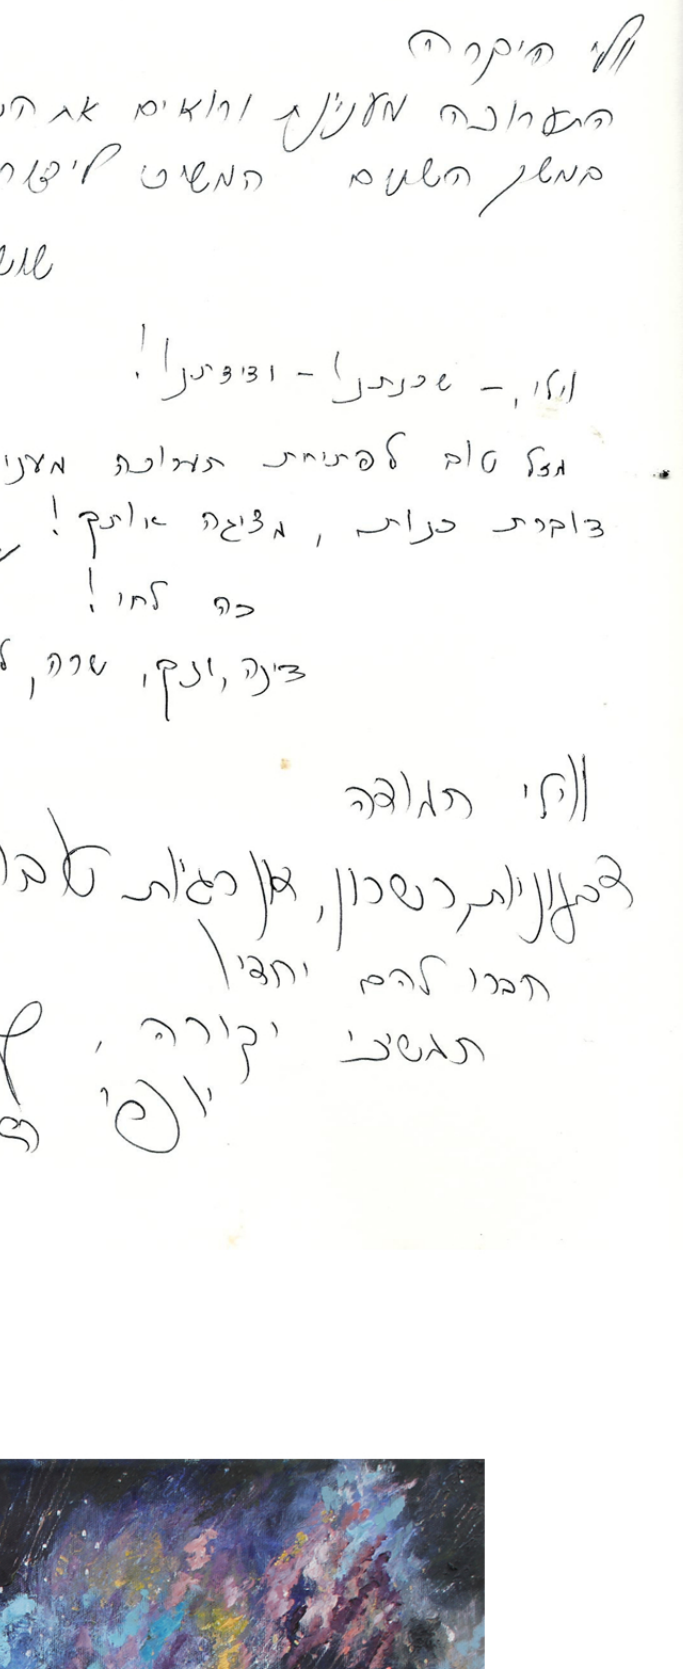 ווילי היקרה
התערוכה מענינת ורואים את
במשך השנים המשיכי ליצור
וילי, – שכנתנו – וידידתנו!
מזל טוב לפתיחת תערוכה מעני
דוברת כנות, מציגה אותך!
כה לחי!
דינה, שרה,
ווילי חמודה
צבעוניות, כשרון, אנרגיות
חברו להם יחדיו
תמשיכי יקורה,
יופי